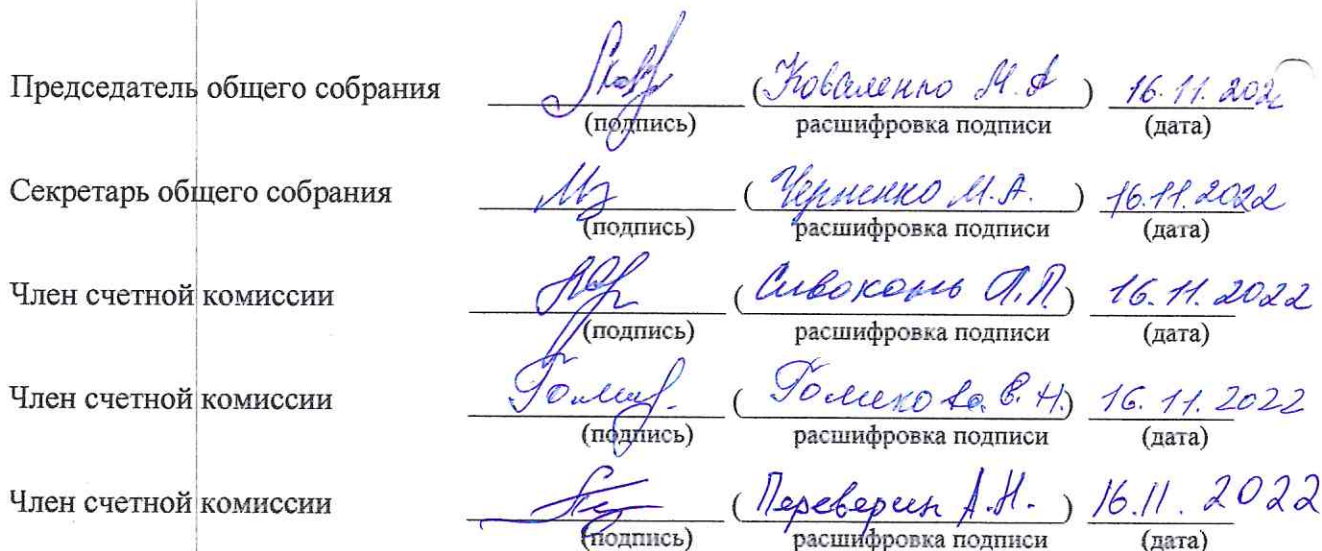 Председатель общего собрания (Коваленко М.А) 16.11.202
(подпись) расшифровка подписи (дата)
Секретарь общего собрания (Черненко М.А.) 16.11.2022
(подпись) расшифровка подписи (дата)
Член счетной комиссии (Сивоконь П.П) 16.11.2022
(подпись) расшифровка подписи (дата)
Член счетной комиссии (В.Н.) 16.11.2022
(подпись) расшифровка подписи (дата)
Член счетной комиссии (А.Н.) 16.11.2022
(подпись) расшифровка подписи (дата)